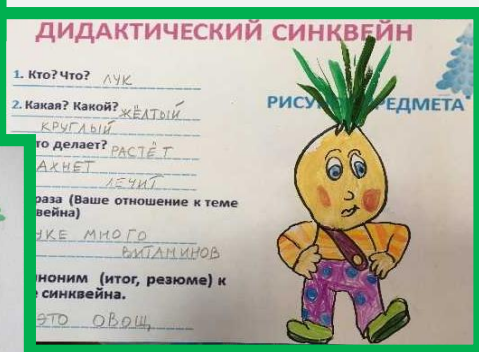 ДИДАКТИЧЕСКИЙ СИНКВЕЙН
1. Кто? Что? ЛУК
2. Какая? Какой? ЖЁЛТЫЙ
КРУГЛЫЙ
то делает? РАСТЁТ
АХНЕТ
ЛЕЧИТ
раза (Ваше отношение к теме
вейна)
УКЕ МНОГО
ВИТАМИНОВ
иноним (итог, резюме) к
синквейна.
ЭТО ОВОЩ
РИСУ РЕДМЕТА